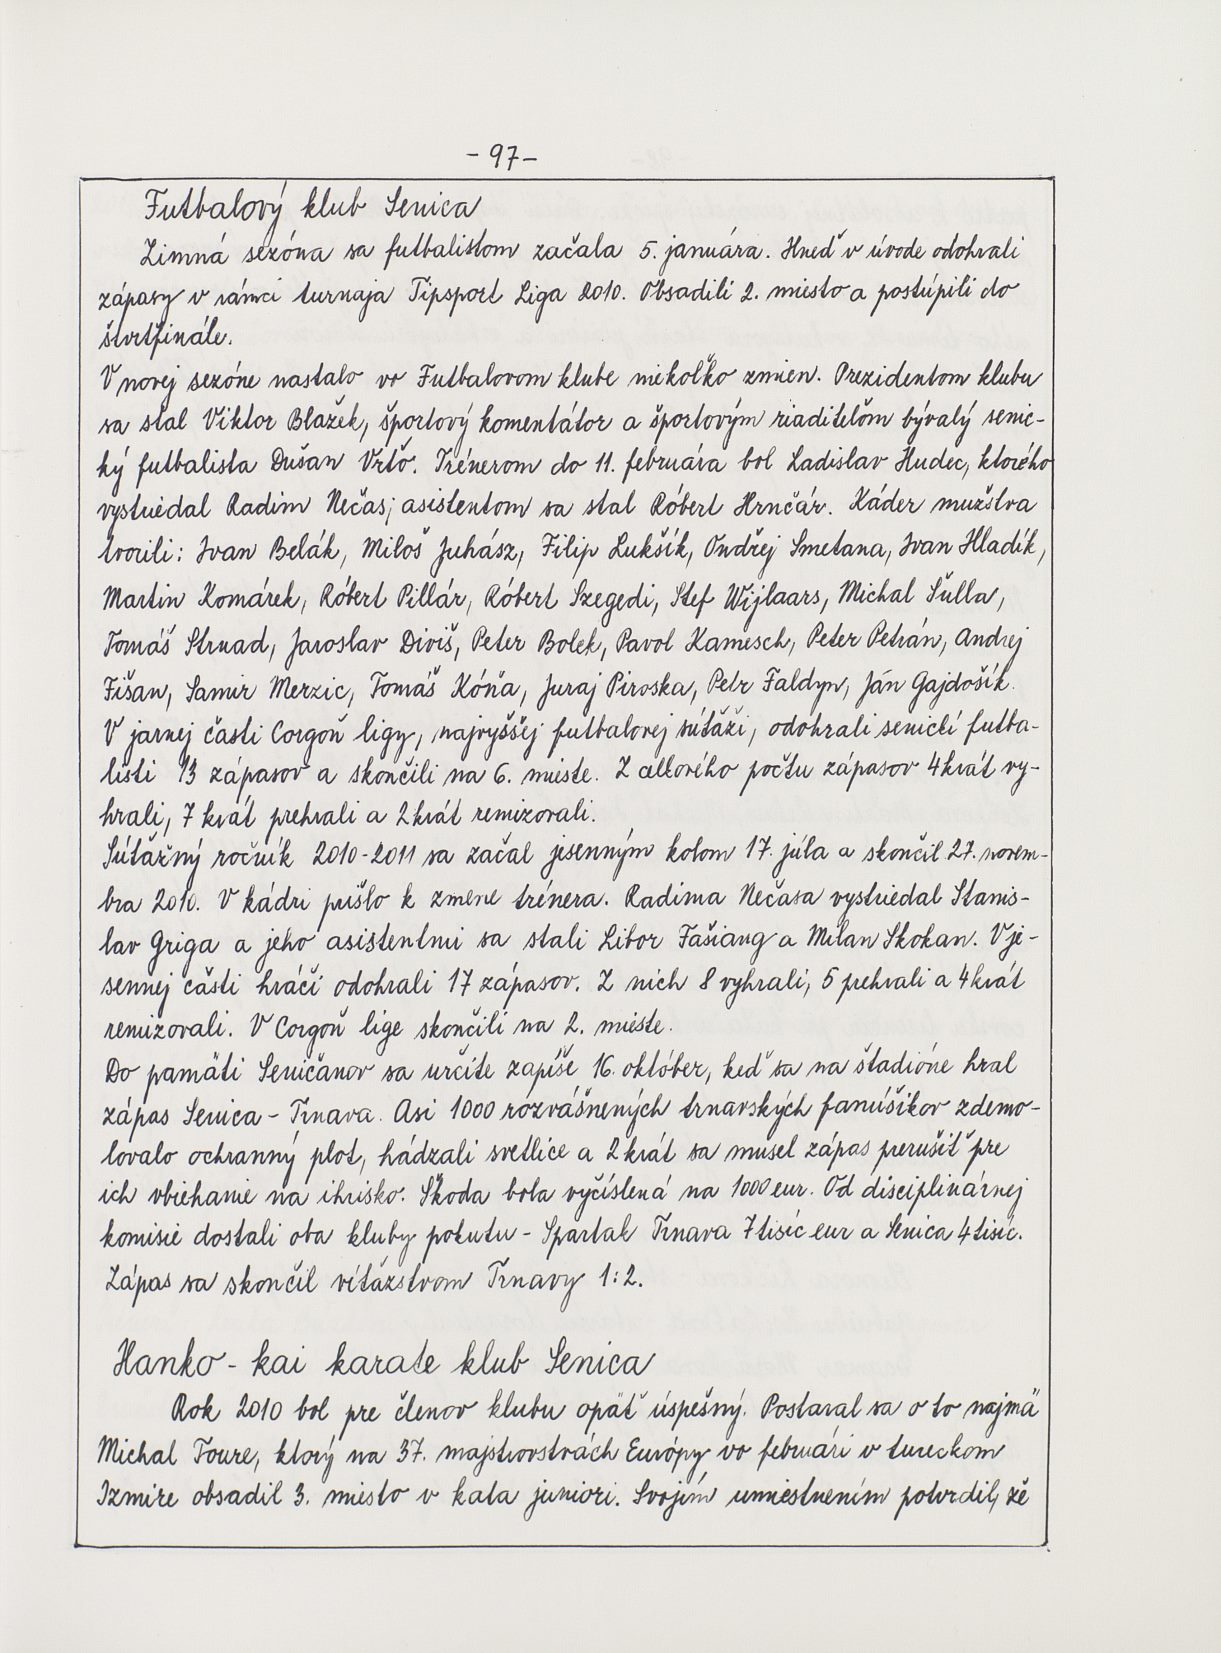 - 97 -
Futbalový klub Senica
Zimná sezóna sa futbalistom začala 5. januára. Hneď v úvode odohrali
zápasy v rámci turnaja Tipsport Liga 2010. Obsadili 2. miesto a postúpili do
štvrťfinále.
V novej sezóne nastalo vo Futbalovom klube niekoľko zmien. Prezidentom klubu
sa stal Viktor Blažek, športový komentátor a športovým riaditeľom bývalý senic-
ký futbalista Dušan Vrťo. Trénerom do 11. februára bol Ladislav Hudec, ktorého
vystriedal Radim Nečas, asistentom sa stal Róbert Hrnčár. Káder mužstva
tvorili: Ivan Belák, Miloš Juhász, Filip Lukšík, Ondřej Smetana, Ivan Hladík,
Martin Komárek, Róbert Pillár, Róbert Szegedi, Stef Wijlaars, Michal Šulla,
Tomáš Strnad, Jaroslav Diviš, Peter Bolek, Pavol Kamesch, Peter Petrán, Andrej
Fišan, Samir Merzic, Tomáš Kóňa, Juraj Piroska, Petr Faldyn, Ján Gajdošík.
V jarnej časti Corgoň ligy, najvyššej futbalovej súťaži, odohrali senickí futba-
listi 13 zápasov a skončili na 6. mieste. Z celkového počtu zápasov 4 krát vy-
hrali, 7 krát prehrali a 2 krát remizovali.
Súťažný ročník 2010-2011 sa začal jesenným kolom 17. júla a skončil 27. novem-
bra 2010. V kádri prišlo k zmene trénera. Radima Nečasa vystriedal Stanis-
lav Griga a jeho asistentmi sa stali Libor Fašiang a Milan Skokan. V je-
sennej časti hráči odohrali 17 zápasov. Z nich 8 vyhrali, 5 prehrali a 4 krát
remizovali. V Corgoň lige skončili na 2. mieste.
Do pamäti Seničanov sa určite zapíše 16. október, keď sa na štadióne hral
zápas Senica - Trnava. Asi 1000 rozvášnených trnavských fanúšikov zdemo-
lovalo ochranný plot, hádzali svetlice a 2 krát sa musel zápas prerušiť pre
ich vbiehanie na ihrisko. Škoda bola vyčíslená na 1000 eur. Od disciplinárnej
komisie dostali oba kluby pokutu - Spartak Trnava 7 tisíc eur a Senica 4 tisíc.
Zápas sa skončil víťazstvom Trnavy 1:2.
Hanko - kai karate klub Senica
Rok 2010 bol pre členov klubu opäť úspešný. Postaral sa o to najmä
Michal Toure, ktorý na 37. majstrovstvách Európy vo februári v tureckom
Izmire obsadil 3. miesto v kata juniori. Svojím umiestnením potvrdil, že